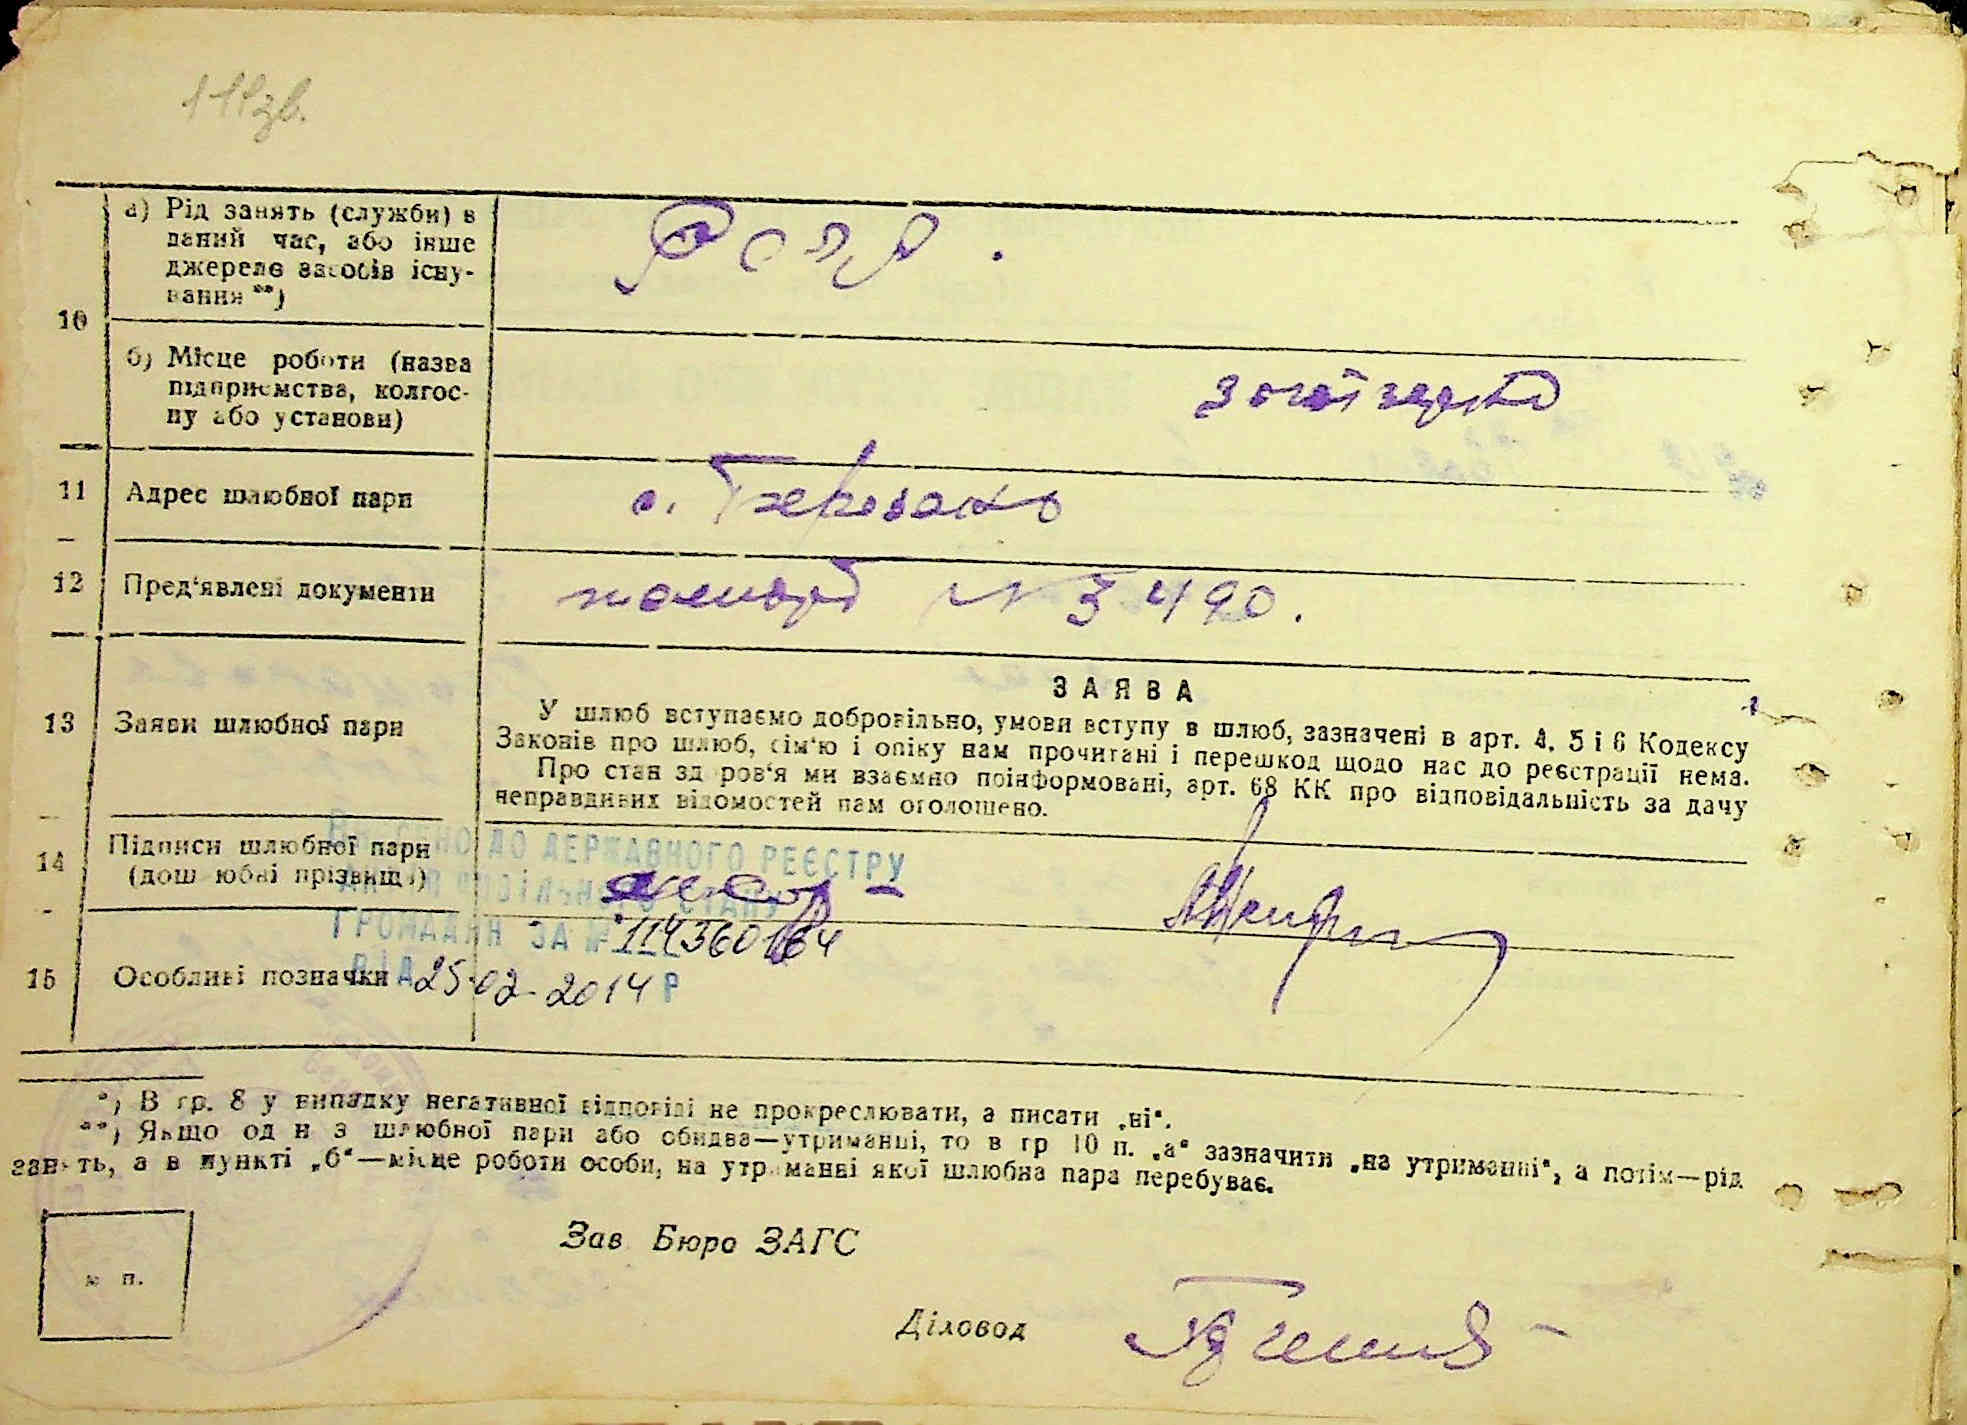 111 зв.
10
а) Рід занять (служби) в
даний час, або інше
джерело засобів існу-
вання **)
б) Місце роботи (назва
підприємства, колгос-
пу або установи)
11 Адрес шлюбної пари
с. Березань
12 Пред'явлені документи
паспорт № 3490.
ЗАЯВА
13 Заяви шлюбної пари
У шлюб вступаємо добровільно, умови вступу в шлюб, зазначені в арт. 4, 5 і 6 Кодексу
Законів про шлюб, сім'ю і опіку нам прочитані і перешкод щодо нас до реєстрації нема.
Про стан здоров'я ми взаємно поінформовані, арт. 68 КК про відповідальність за дачу
неправдивих відомостей нам оголошено.
14 Підписи шлюбної пари
(дошлюбні прізвища)
ВНЕСЕНО ДО ДЕРЖАВНОГО РЕЄСТРУ
АКТІВ ЦИВІЛЬНОГО СТАНУ
ГРОМАДЯН ЗА № 114360164
ВІД 25.02.2014 Р
15 Особливі позначки
*) В гр. 8 у випадку негативної відповіді не прокреслювати, а писати „ні“.
**) Якщо один з шлюбної пари або обидва—утриманці, то в гр 10 п. „а“ зазначити „на утриманні“, а потім—рід
занять, а в пункті „б“—місце роботи особи, на утриманні якої шлюбна пара перебуває.
Зав Бюро ЗАГС
м п.
Діловод